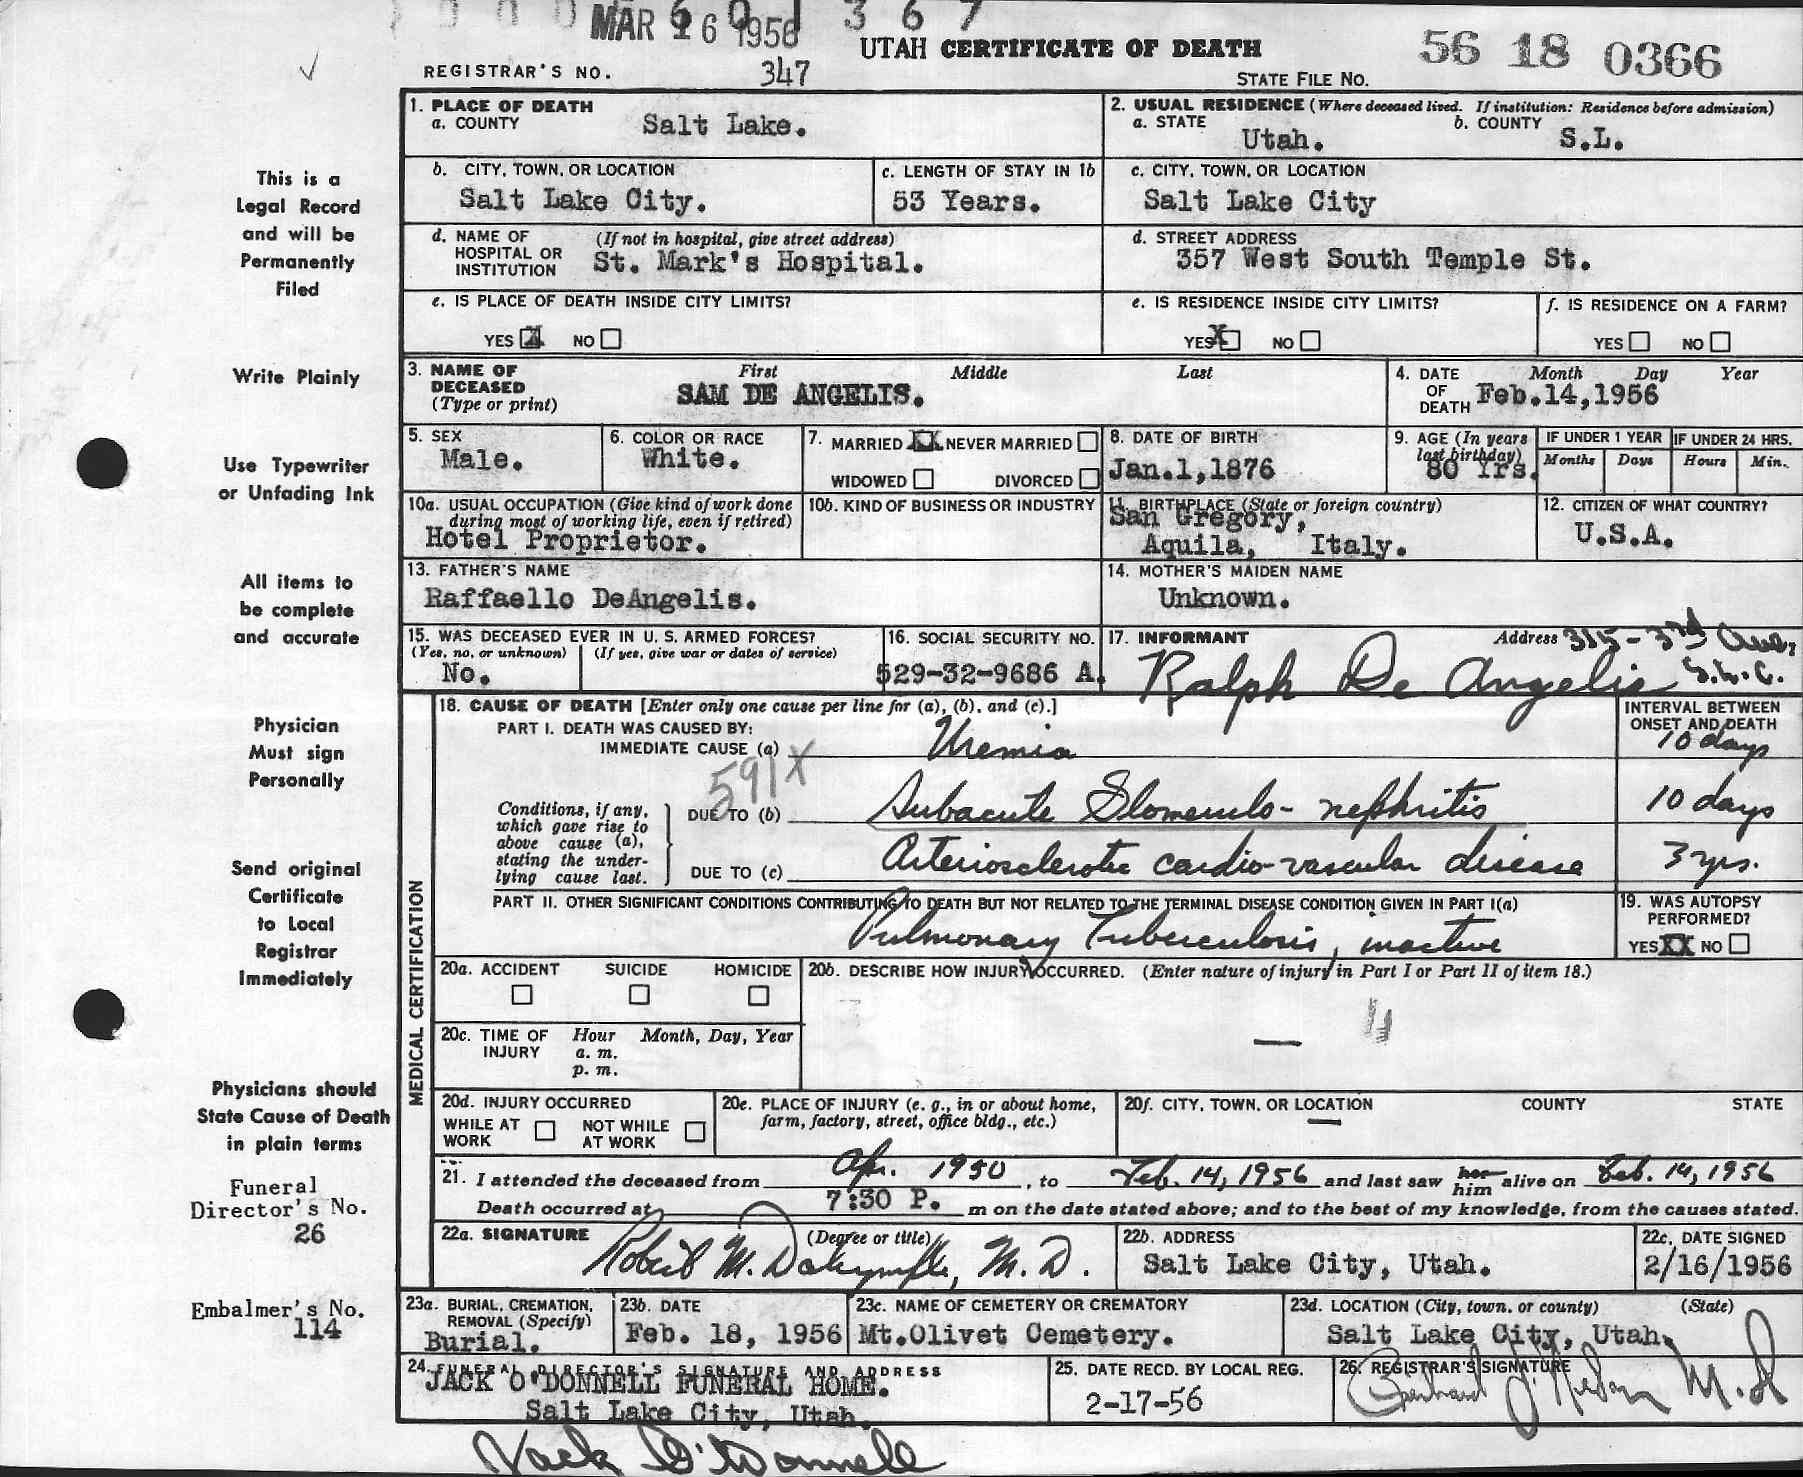 MAR 26 1956
1367
UTAH CERTIFICATE OF DEATH
56 18 0366
REGISTRAR'S NO. 347
STATE FILE NO.
1. PLACE OF DEATH
a. COUNTY Salt Lake.
2. USUAL RESIDENCE (Where deceased lived. If institution: Residence before admission)
a. STATE Utah. b. COUNTY S.L.
b. CITY, TOWN, OR LOCATION
Salt Lake City.
c. LENGTH OF STAY IN 1b
53 Years.
c. CITY, TOWN, OR LOCATION
Salt Lake City
d. NAME OF HOSPITAL OR INSTITUTION (If not in hospital, give street address)
St. Mark's Hospital.
d. STREET ADDRESS
357 West South Temple St.
e. IS PLACE OF DEATH INSIDE CITY LIMITS?
YES X NO
e. IS RESIDENCE INSIDE CITY LIMITS?
YES X NO
f. IS RESIDENCE ON A FARM?
YES NO
3. NAME OF DECEASED (Type or print)
First Middle Last
SAM DE ANGELIS.
4. DATE OF DEATH
Month Day Year
Feb.14,1956
5. SEX
Male.
6. COLOR OR RACE
White.
7. MARRIED XX NEVER MARRIED
WIDOWED DIVORCED
8. DATE OF BIRTH
Jan.1,1876
9. AGE (In years last birthday)
80 Yrs.
IF UNDER 1 YEAR
Months Days
IF UNDER 24 HRS.
Hours Min.
10a. USUAL OCCUPATION (Give kind of work done during most of working life, even if retired)
Hotel Proprietor.
10b. KIND OF BUSINESS OR INDUSTRY
11. BIRTHPLACE (State or foreign country)
San Gregory,
Aquila, Italy.
12. CITIZEN OF WHAT COUNTRY?
U.S.A.
13. FATHER'S NAME
Raffaello DeAngelis.
14. MOTHER'S MAIDEN NAME
Unknown.
15. WAS DECEASED EVER IN U. S. ARMED FORCES?
(Yes, no, or unknown) (If yes, give war or dates of service)
No.
16. SOCIAL SECURITY NO.
529-32-9686 A.
17. INFORMANT Address 315-3rd Ave,
Ralph De Angelis S.L.C.
MEDICAL CERTIFICATION
18. CAUSE OF DEATH [Enter only one cause per line for (a), (b), and (c).]
INTERVAL BETWEEN ONSET AND DEATH
PART I. DEATH WAS CAUSED BY:
IMMEDIATE CAUSE (a) Uremia 10 days
591X
Conditions, if any, which gave rise to above cause (a), stating the underlying cause last.
DUE TO (b) Subacute Glomerulo-nephritis 10 days
DUE TO (c) Arteriosclerotic cardio-vascular disease 3 yrs.
PART II. OTHER SIGNIFICANT CONDITIONS CONTRIBUTING TO DEATH BUT NOT RELATED TO THE TERMINAL DISEASE CONDITION GIVEN IN PART I(a)
Pulmonary Tuberculosis, inactive
19. WAS AUTOPSY PERFORMED?
YES XX NO
20a. ACCIDENT SUICIDE HOMICIDE
20b. DESCRIBE HOW INJURY OCCURRED. (Enter nature of injury in Part I or Part II of item 18.)
—
20c. TIME OF INJURY
Hour Month, Day, Year
a. m.
p. m.
20d. INJURY OCCURRED
WHILE AT WORK NOT WHILE AT WORK
20e. PLACE OF INJURY (e. g., in or about home, farm, factory, street, office bldg., etc.)
20f. CITY, TOWN, OR LOCATION COUNTY STATE
—
21. I attended the deceased from Apr. 1950, to Feb. 14, 1956 and last saw her him alive on Feb. 14, 1956
Death occurred at 7:30 P. m on the date stated above; and to the best of my knowledge, from the causes stated.
22a. SIGNATURE (Degree or title)
Robert M. Dalrymple, M. D.
22b. ADDRESS
Salt Lake City, Utah.
22c. DATE SIGNED
2/16/1956
23a. BURIAL, CREMATION, REMOVAL (Specify)
Burial.
23b. DATE
Feb. 18, 1956
23c. NAME OF CEMETERY OR CREMATORY
Mt.Olivet Cemetery.
23d. LOCATION (City, town, or county) (State)
Salt Lake City, Utah.
24. FUNERAL DIRECTOR'S SIGNATURE AND ADDRESS
JACK O'DONNELL FUNERAL HOME.
Salt Lake City, Utah.
Jack O'Donnell
25. DATE RECD. BY LOCAL REG.
2-17-56
26. REGISTRAR'S SIGNATURE
M.D
This is a
Legal Record
and will be
Permanently
Filed
Write Plainly
Use Typewriter
or Unfading Ink
All items to
be complete
and accurate
Physician
Must sign
Personally
Send original
Certificate
to Local
Registrar
Immediately
Physicians should
State Cause of Death
in plain terms
Funeral
Director's No.
26
Embalmer's No.
114